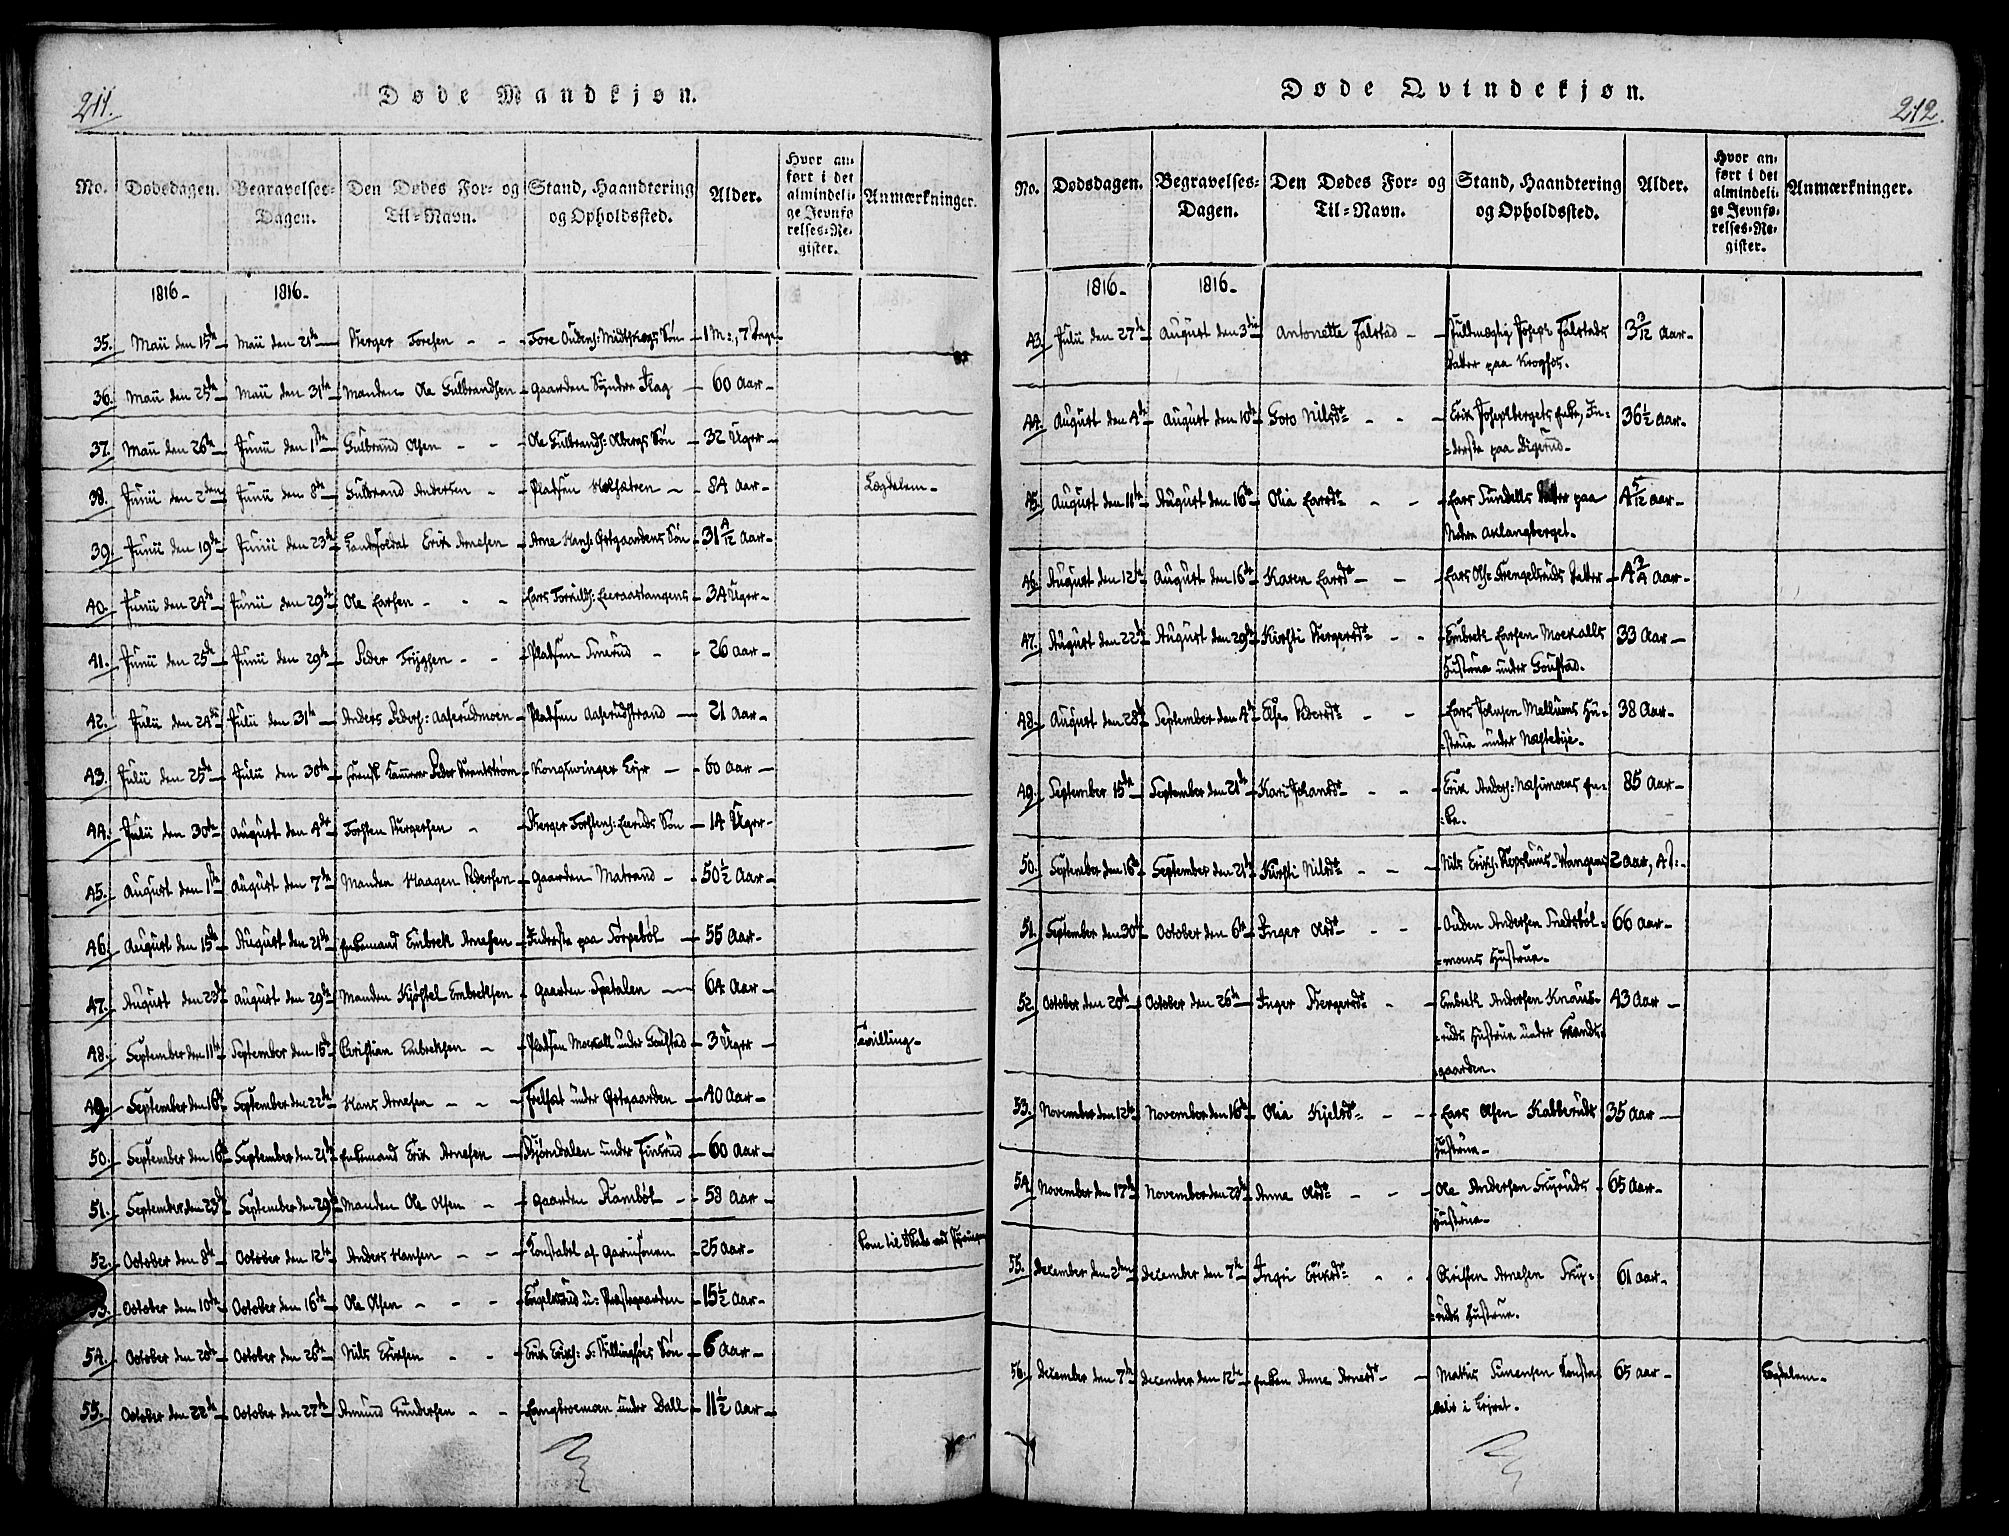 211.
Døde Mandkjøn.
No. Dødsdagen. Begravelses-Dagen. Den Dødes For- og Til-Navn. Stand, Haandtering og Opholdssted. Alder. Hvor anført i det almindelige Jevnførelses-Register. Anmærkninger.
1816- 1816-
35. Maii den 15de Maii den 21de Berger Toresen - - Tore Oudens: Midtskogs Søn 1 M:, 7 Dage
36. Maii den 25de Maii den 31te Manden Ole Gulbrandsen gaarden Syndre Flag 60 Aar-
37. Maii den 26de Junii den 1ste Gulbrand Olsen - - Ole Gulbrands: Søn 32 Uger
38. Junii den 2den Junii den 8de Gulbrand Andersen - Pladsen 84 Aar- Lægdslem-
39. Junii den 19de Junii den 23de Landsoldat Erik Arnesen Arne Hans: Østgaardens Søn 31 4/12 Aar-
40. Junii den 24de Junii den 29de Ole Larsen - - - Lars 34 Uger-
41. Junii den 25de Junii den 29de Peder Tryggsen - - Pladsen - 26 Aar-
42. Julii den 24de Julii den 31te Anders Peders: Aaserudmoen Pladsen Aaserudstrand 21 Aar-
43. Julii den 25de Julii den 30te Peder Kongsvinger Leyr - 60 Aar-
44. Julii den 30te August den 4de Torsten Bergersen - Berger Torstens: Søn 14 Uger-
45. August den 1ste August den 7de Manden Haagen Pedersen gaarden Matrand - 50½ Aar-
46. August den 15de August den 21de Enkemand Embrek Arnesen Inderste paa 55 Aar-
47. August den 23de August den 29de Manden Kjøstel Embreksen gaarden Spetalen 64 Aar-
48. September den 11te September den 15de Christian Embreksen - Pladsen Moekall under Goustad 3 Uger- Tvilling-
49. September den 16de September den 22de Hans Arnesen - - - under Østgaarden 40 Aar-
50. September den 16de September den 21de Enkemand Erik Arnesen Bjørndalen under 60 Aar-
51. September den 23de September den 29de Manden Ole Olsen - gaarden Rambøl - 58 Aar-
52. October den 8de October den 12te Anders Hansen - - Constabel af Garnisonen 25 Aar- kom til Skade ved
53. October den 10de October den 16de Ole Olsen - - - u: Præstegaarden 15½ Aar-
54. October den 20de October den 26de Nils Eriksen - - Erik Eriks: Søn 6 Aar-
55. October den 22de October den 27de Amund Gundersen - - Langbroemoen under Dall 11½ Aar-
212.
Døde Qvindekjøn.
No. Dødsdagen. Begravelses-Dagen. Den Dødes For- og Til-Navn. Stand, Haandtering og Opholdssted. Alder. Hvor anført i det almindelige Jevnførelses-Register. Anmærkninger.
1816- 1816-
43. Julii den 27de August den 3die Antonette Falstad - Fuldmægtig Joseph Falstads 3 3/12 Aar-
Datter paa Krogfos.
44. August den 4de August den 10de Goro Nilsdtr - - Erik Josephbergets Enke, In- 36½ Aar-
-derste paa Digerud-
45. August den 11te August den 16de Olia Larsdtr - - Lars Datter paa 4 5/12 Aar-
Nedre
46. August den 12te August den 16de Karen Larsdtr - - Lars Ols: Datter 4¾ Aar-
47. August den 22de August den 29de Kirsti Bergersdtr - - Embrek Larsen Moekalls 33 Aar-
Hustrue under Goustad.
48. August den 28de September den 4de Else Pedersdtr - - Lars Johnsen Mellums Hu- 38 Aar-
-strue under Næstebye-
49. September 15de September den 21de Kari - - - Erik Anders: En- 85 Aar-
-ke.
50. September den 16de September den 21de Kirsti Nilsdtr - - - Nils Eriks: 2 Aar,
51. September den 30te October den 6te Inger Olsdtr - - Ouden Andersen 66 Aar-
-moens Hustrue-
52. October den 20de October den 26de Inger Bergersdtr - Embrek Andersen Knaus- 43 Aar-
-ruds Hustrue under
gaarden.
53. November den 12te November den 16de Olia Kjelsdtr - - Lars Olsen Kabberuds 35 Aar-
Hustrue-
54. November den 17de November den 23de Anna Olsdtr - - - Ole Andersen 65 Aar-
Hustrue-
55. December den 2den December den 7de Ingri Eriksdtr - - Christen Arnesen 61 Aar-
-ruds Hustrue.
56. December den 7de December den 12te Enken Anne Arnesdtr - Simensen 65 Aar- Lægdslem-
i Leyret.